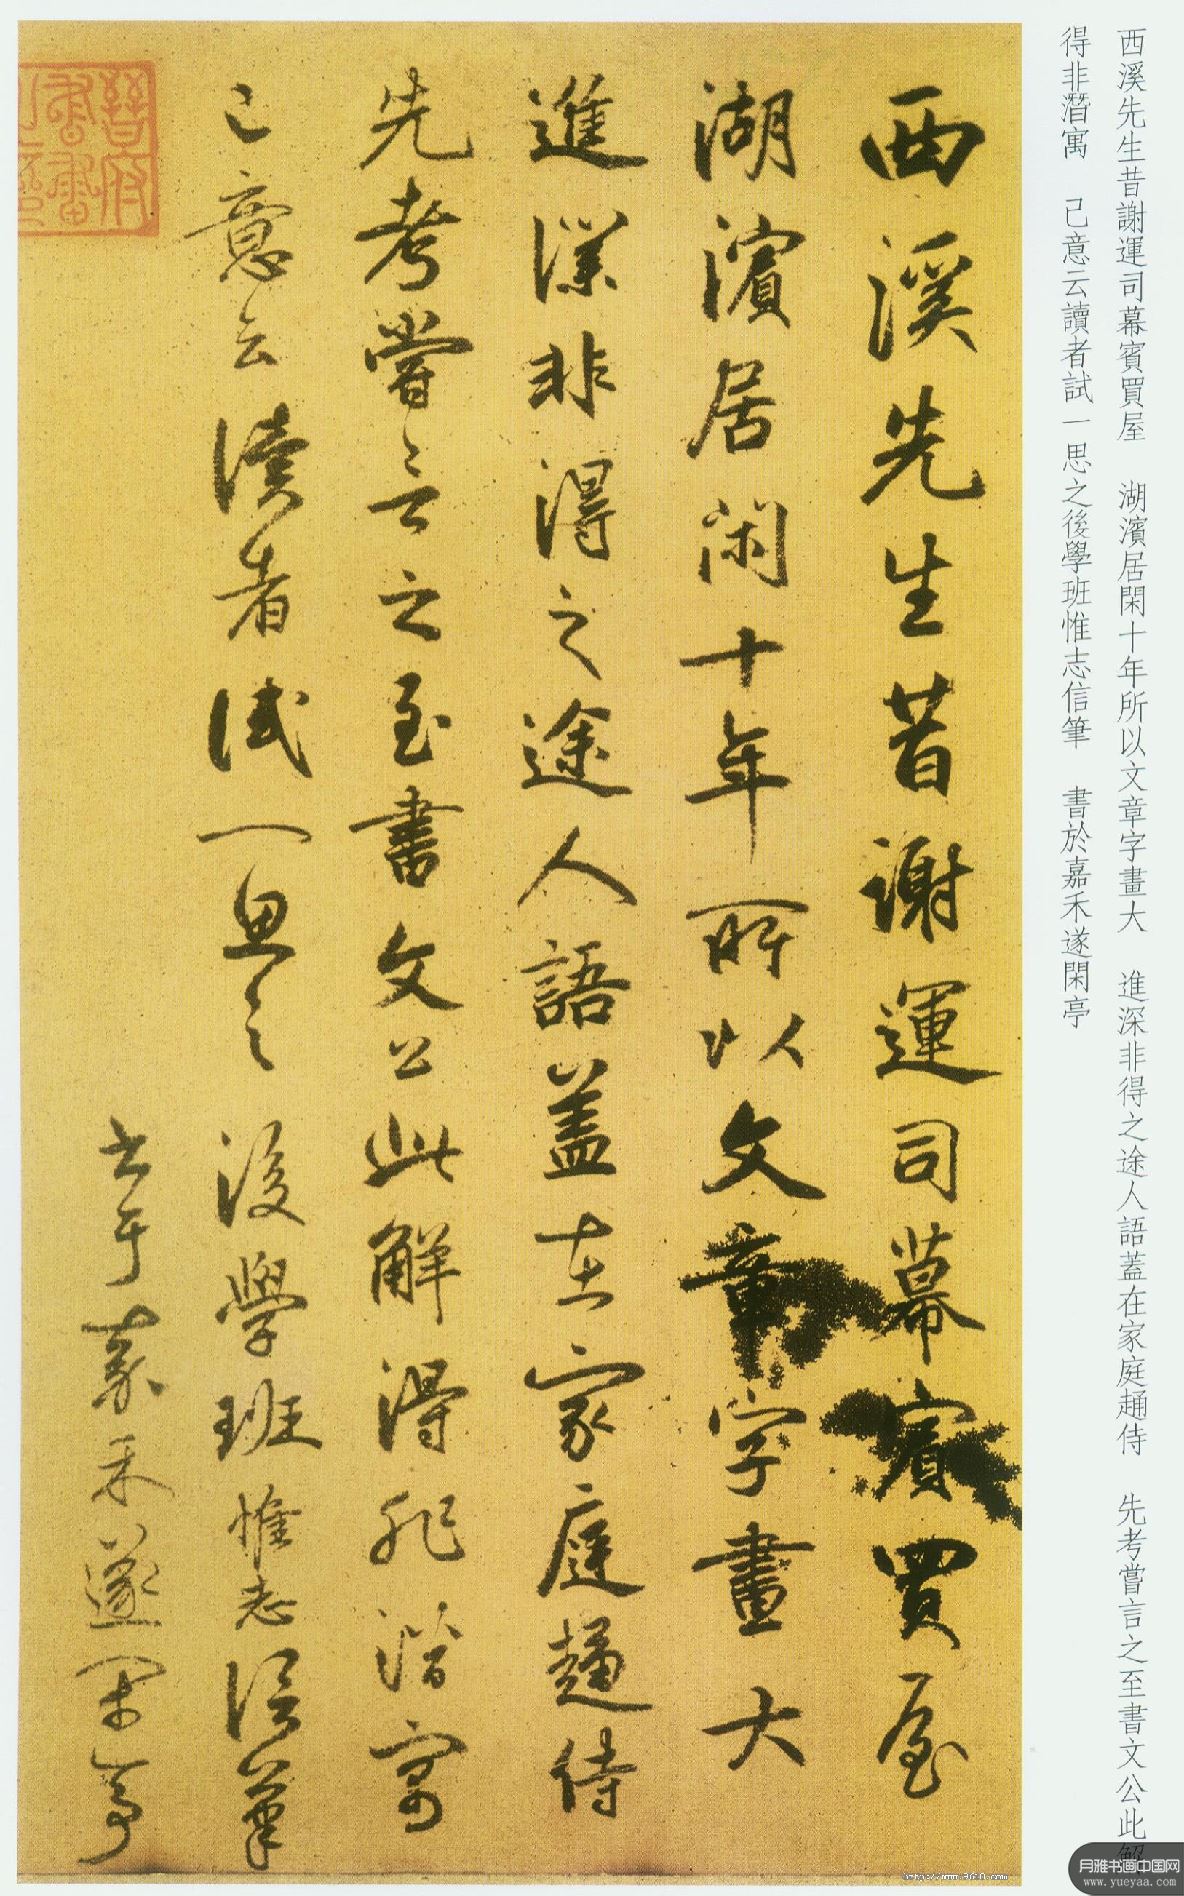 西溪先生昔謝運司幕賓買屋　湖濱居閑十年所以文章字畫大　進深非得之途人語蓋在家庭趨侍　先考嘗言之至書文公此解
得非潛寓　己意云讀者試一思之後學班惟志信筆　書於嘉禾遂閑亭
西溪先生昔謝運司幕賓買屋
湖濱居閑十年所以文章字畫大
進深非得之途人語盖在家庭趨侍
先考嘗言之至書文公此解得非潛寓
己意云讀者試一思之　後學班惟志信筆
书于嘉禾遂閑亭
晉府書畫之印
月雅书画中国网
www.yueyaa.com